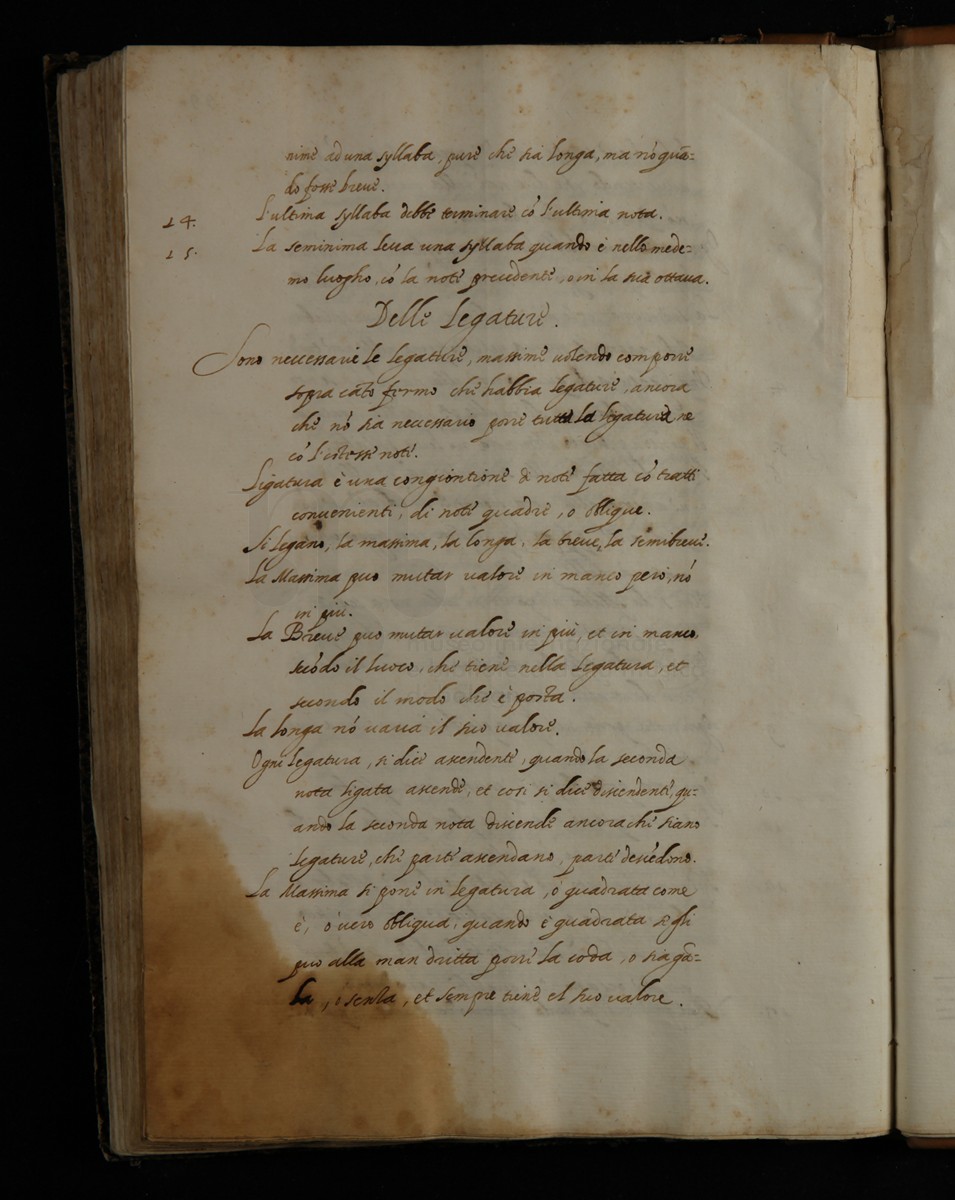 nime ad una syllaba, pure che sia longa, ma nó quã=
do fosse breve.
14. L'ultima syllaba debbe terminare có l'ultima nota.
15. La seminima leva una syllaba quando è nello mede=
mo luogho, có la note precedente, o in la sua ottava.
Delle Legature.
Sono necessarie le legature, massime volendo componere
sopra cãto fermo che habbia legature, ancora
che nó sia necessario porre tutte le ligature, ne
có l'istesse note.
Ligatura è una congiontione di note fatta có tratti
convenienti, di note quadre, o oblique.
Si legano, la massima, la longa, la breve, la semibreve.
La Massima puo mutar valore in manco però, nó
in più.
La Breve puo mutar valore in più, et in manco,
secódo il luoco, che tiene nella legatura, et
secondo il modo che è posta.
La longa nó varia il suo valore.
Ogni legatura, si dice ascendente, quando la seconda
nota ligata ascende, et cosi si dice discendente, qu=
ando la seconda nota discende ancora che siano
legature, che parte ascendano, parte descẽdono.
La Massima si pone in legatura, o quadrata come
è, o vero obliqua, quando è quadrata se gli
puo alla man dritta porre la coda, o sia gã=
ba, o senza, et sempre tiene el suo valore.